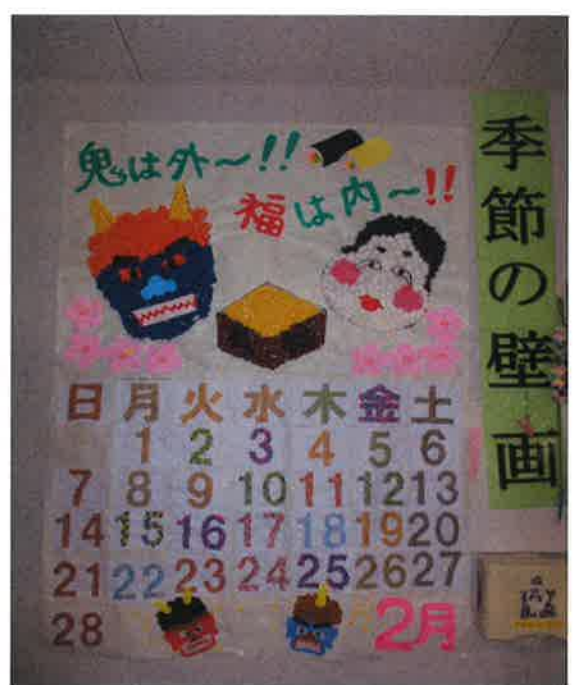 鬼は外〜!!
福は内〜!!
季節の壁画
日 月 火 水 木 金 土
1 2 3 4 5 6
7 8 9 10 11 12 13
14 15 16 17 18 19 20
21 22 23 24 25 26 27
28
2月